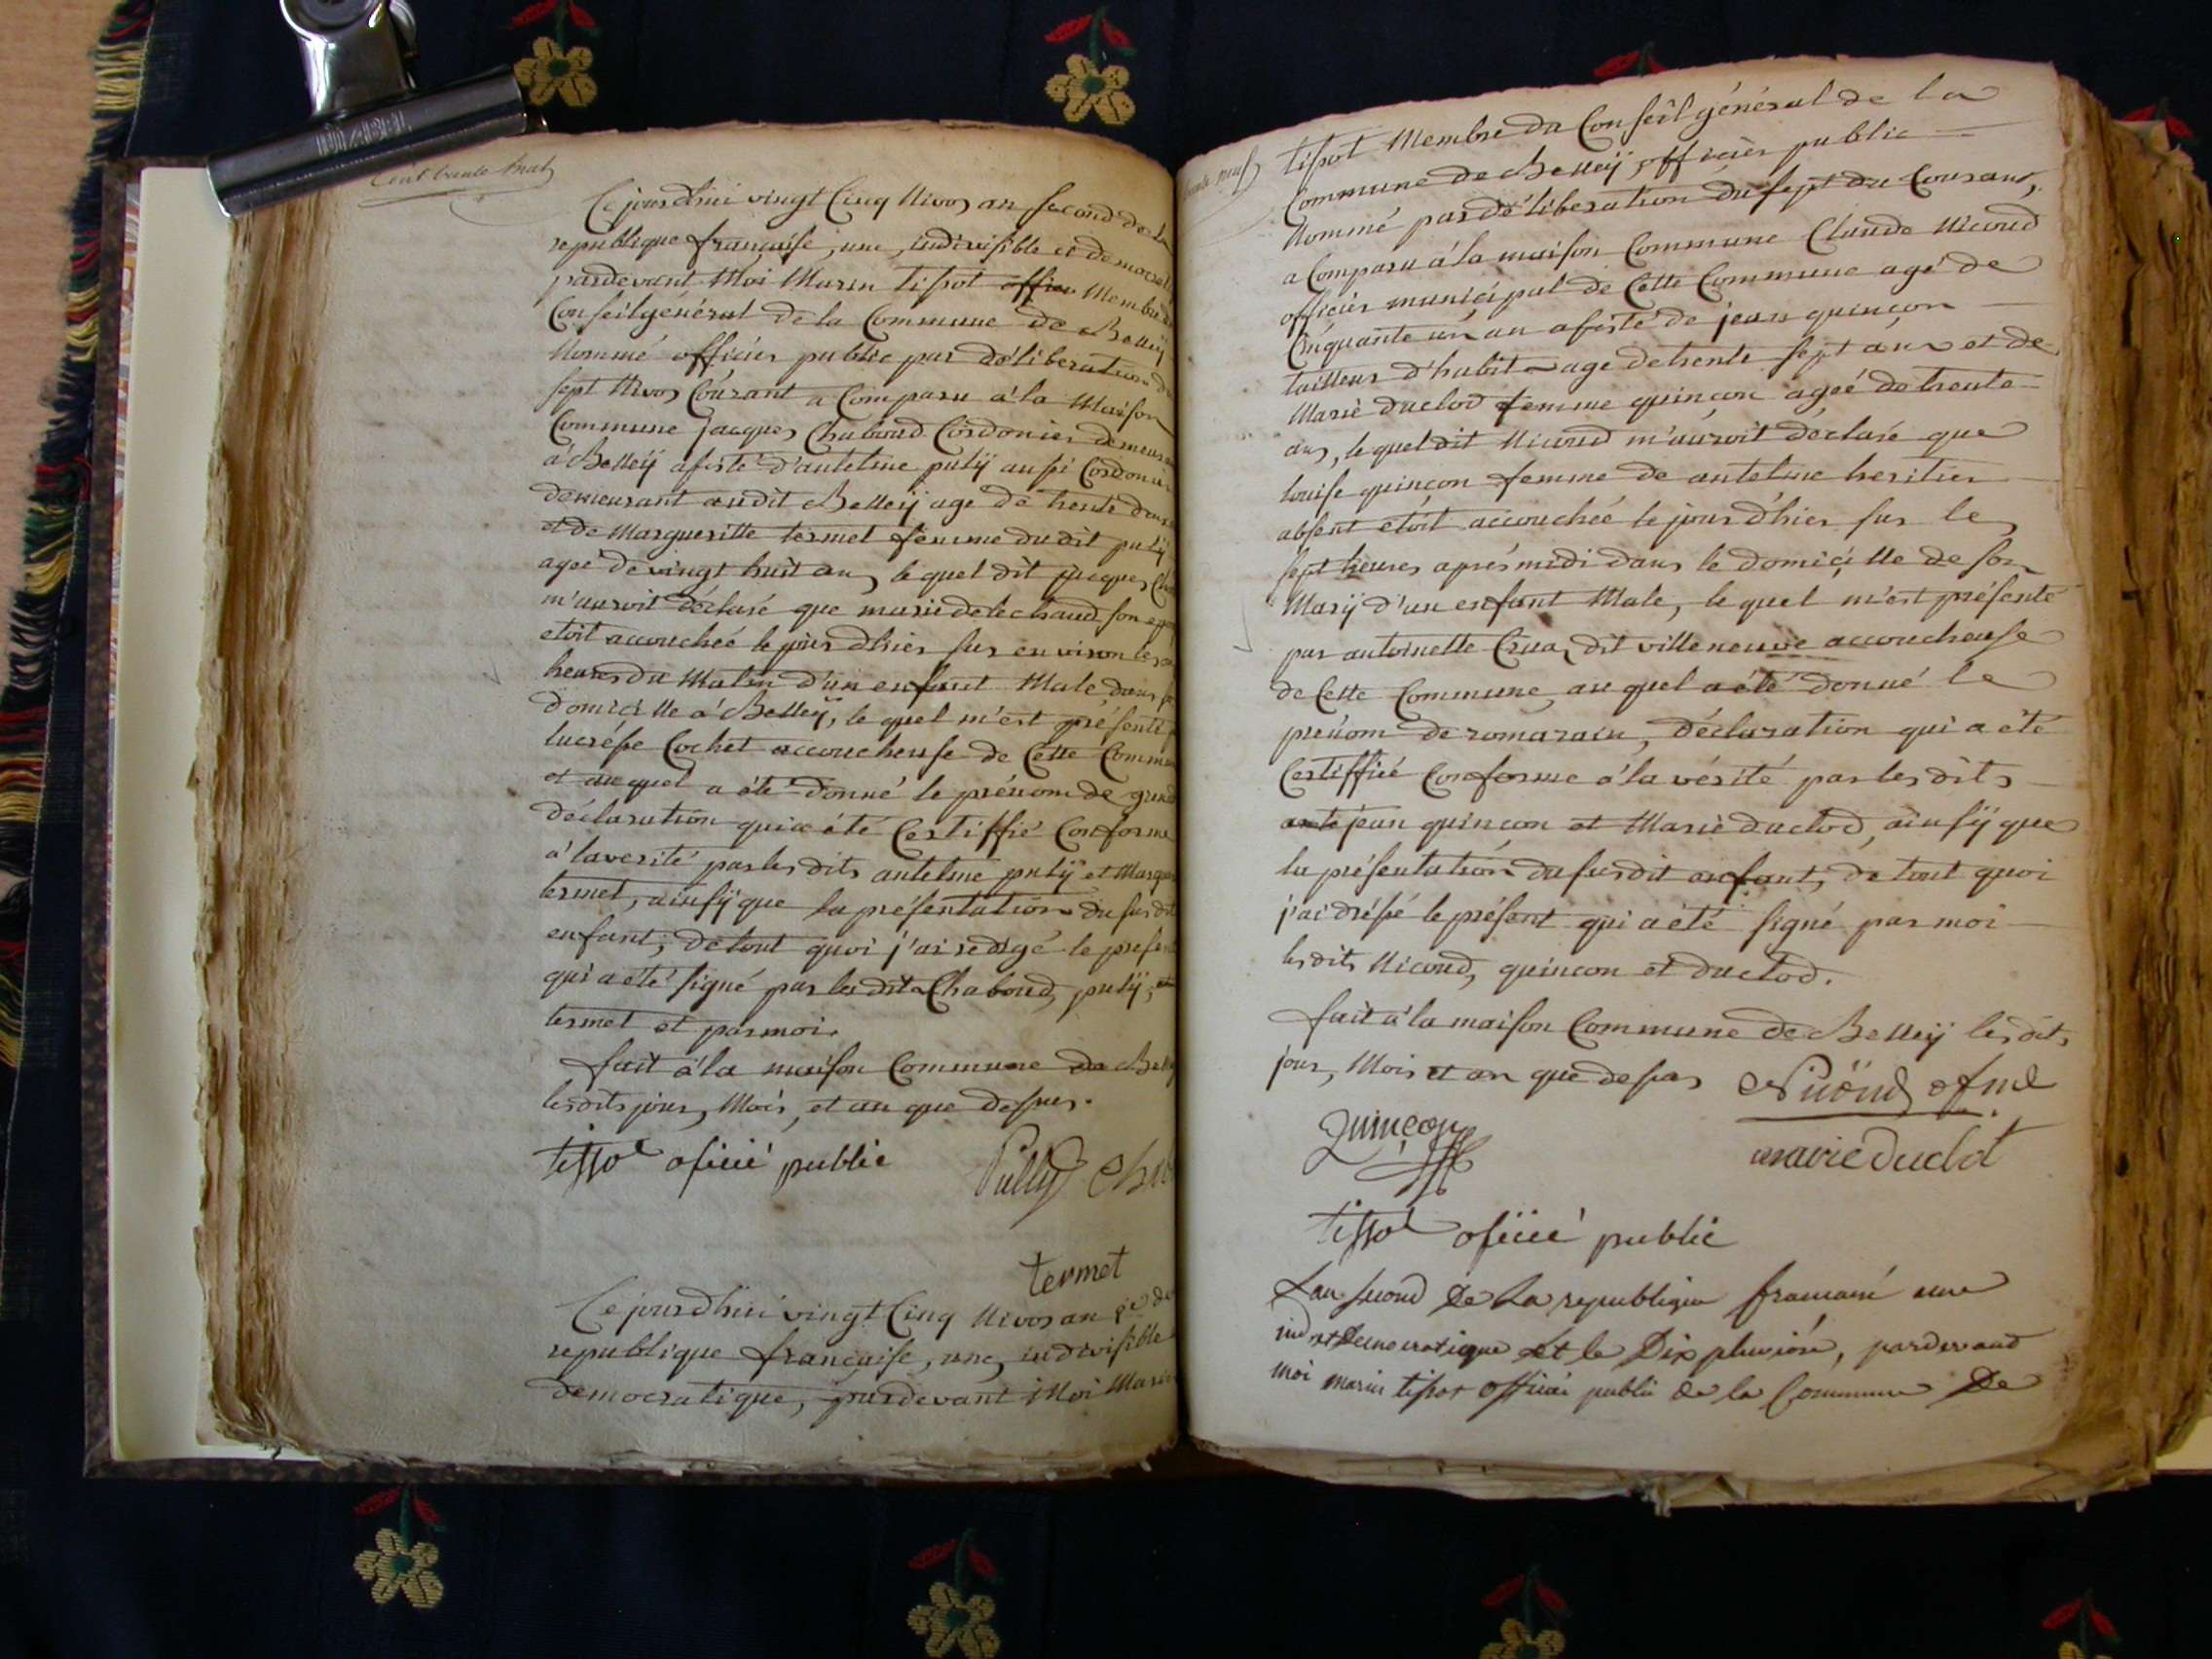 Cent trente huit
Ce jourd'hui vingt Cinq Nivos an second de la
republique française, une, indivisible et democrat
pardevant Moi Marin tissot officier Membre du
Conseil général de la Commune de Belleÿ
Nommé officier public par déliberation du
sept Nivos Courant a Comparu à la Maison
Commune jacques Chaboud Cordonier demeurant
à Belleÿ assisté d'antelme pulÿ aussi Cordonier
demeurant audit Belleÿ age de trente deux
et de Margueritte termet femme dudit pulÿ
ageé de vingt huit ans, le quel dit jacques Cha
m'auroit déclaré que marie delechaud son epou
etoit accouchée le jour d'hier sur environ les
heures du Matin d'un enfant Male dans
domicille à Belleÿ, le quel m'est présenté
lucresse Cochet accoucheuse de Cette Commu
et auquel a été donné le prénom de
déclaration qui a été Certiffié Conforme
à la verité par les dits antelme pulÿ et Margu
termet, ainsÿ que la présentation du susdit
enfant; de tout quoi j'ai redigé le present
qui a eté signé par les dits Chaboud, pulÿ, et
termet et par moi.
fait à la maison Commune de Belleÿ
les dits jour, Mois, et an que dessus.
tissot oficié public Pully Chab
termet
Ce jourd'hui vingt Cinq Nivos an 2e de
republique française, une, indivisible
democratique, pardevant Moi Marin
trente neuf
tissot Membre du Conseil général de la
Commune de Belleÿ, officier public
Nommé par déliberation du sept du Courant,
a Comparu à la maison Commune Claude Nicoud
officier municipal de Cette Commune agé de
Cinquante un an assisté de jean quinçon
tailleur d'habit age de trente sept ans et de
Marie duclod femme quinçon ageé de trente
ans, le quel dit Nicoud m'auroit déclaré que
louise quinçon femme de antelme heritier
absent etoit accouchée le jour d'hier sur les
sept heures après midi dans le domicille de son
Marÿ d'un enfant Male, le quel m'est présenté
par antoinette Cruas dit villeneuve accoucheuse
de Cette Commune, au quel a été donné le
prénom de romarain, déclaration qui a été
Certiffié Conforme à la vérité par les dits
ante jean quincon et Marie duclod, ainsÿ que
la présentation du susdit enfant, de tout quoi
j'ai dréssé le présent qui a été signé par moi
les dits Nicoud, quincon et duclod.
fait à la maison Commune de Belleÿ les dits
jour, Mois et an que dessus Nicoud ofml
Quinçon
marie duclot
tissot oficié public
Lan second de la republique francaise une
ind et democratique et le Dix pluviose, pardevand
moi marin tissot officié public de la Commune De